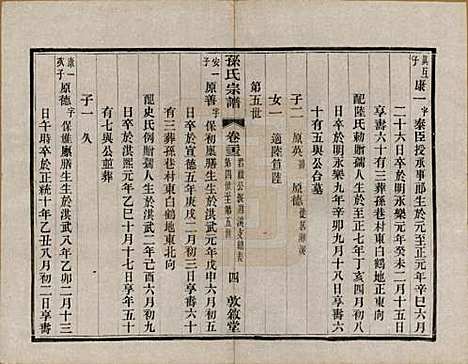 眞五子
康一 字泰臣授承事郎生於元至正元年辛巳六月
二十六日卒於明永樂元年癸未二月十五日
享壽六十有三葬孫巷村東白鶴地正東向
配陸氏勅贈孺人生於 年丁亥四月初八
日卒於明永樂九年辛卯九月十八日享壽六
十有五與公合墓
子二 原英 原德
女一 適陸
第五世
孫氏宗譜
卷三
第四世至第五世
四
敦敘堂
安一子
原善 字保初 膳生於洪武元年戊申六月初
六日卒於宣德三年戊申七月初七日享壽六十
有三葬孫巷村東白鶴地東北向
配史氏例贈孺人生於洪武二年己酉六月初九
日卒於洪熙元年乙巳八月初七日享年五十
有七與公並葬
子一 久
康一次子
原德 字保 膳生於洪武八年乙卯二月初一
日午時卒於正統十年乙丑八月初二日享壽